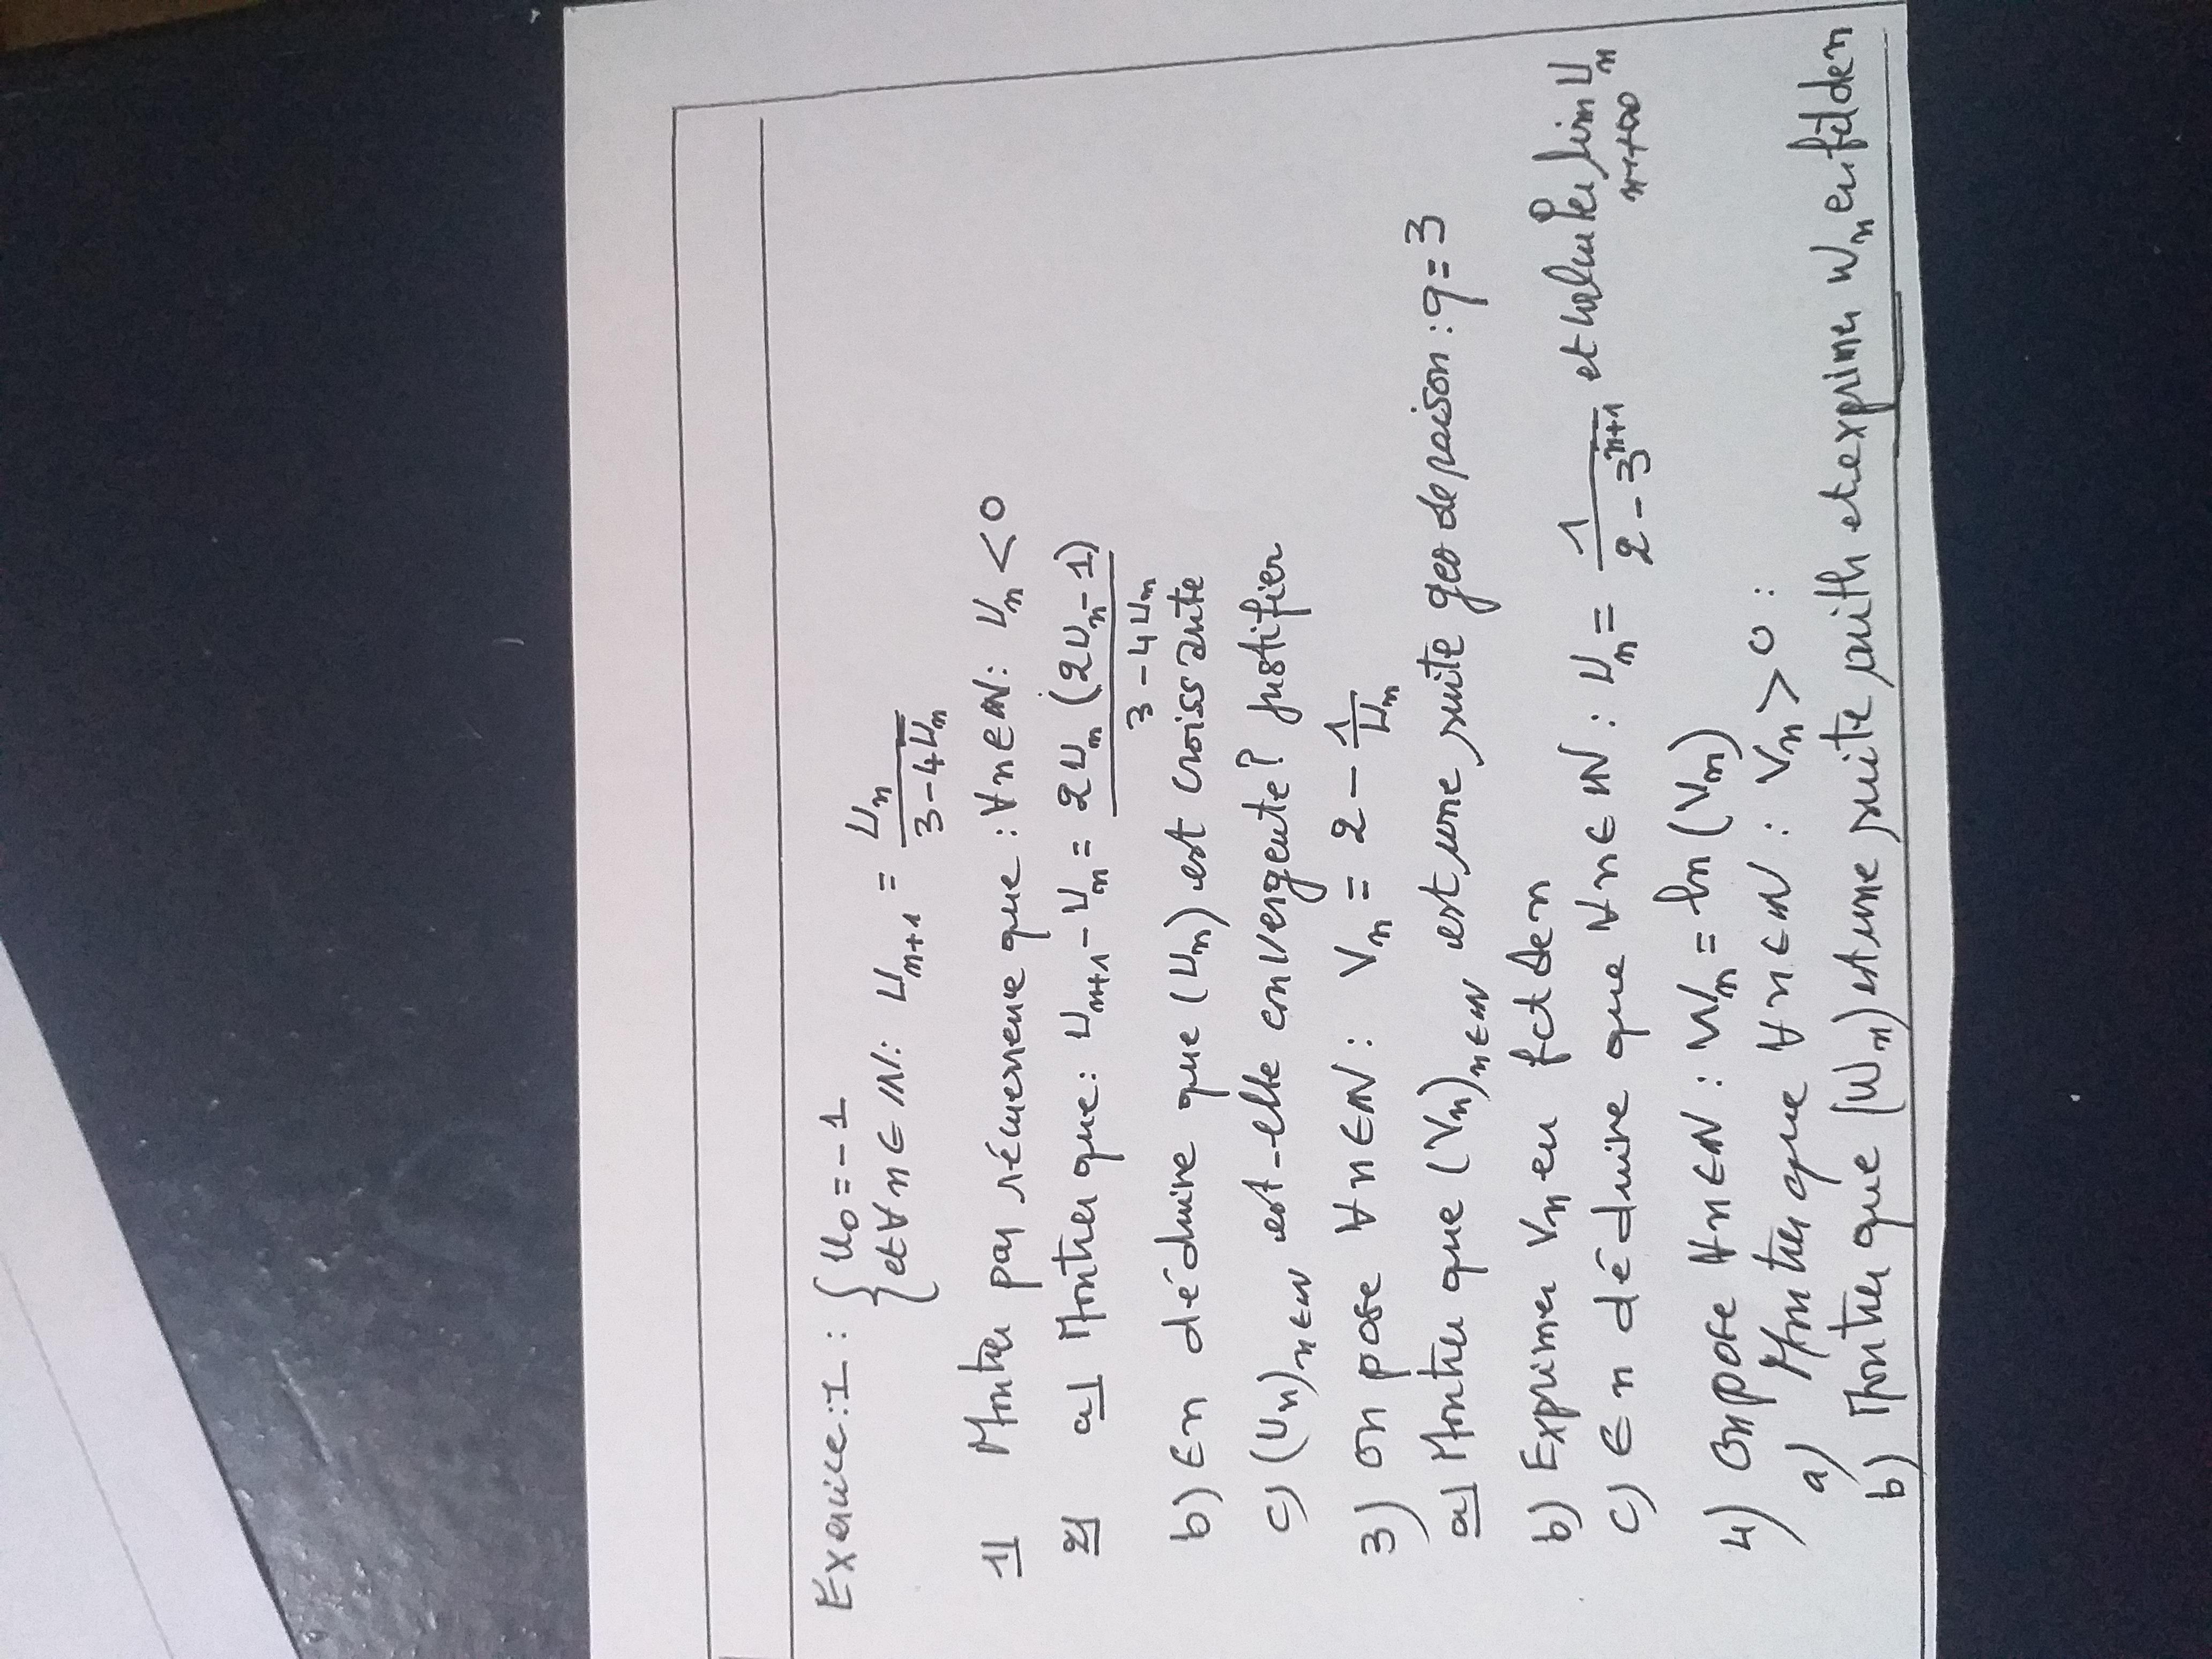 Exercice: 1 : { U₀ = -1
et ∀n ∈ IN: Uₙ₊₁ = Uₙ / (3 - 4Uₙ)
1) Montrer par récurrence que : ∀n ∈ IN: Uₙ < 0
2) a) Montrer que: Uₙ₊₁ - Uₙ = 2Uₙ (2Uₙ - 1) / (3 - 4Uₙ)
b) En déduire que (Uₙ) est croissante
c) (Uₙ)n∈IN est-elle convergente? justifier
3) on pose ∀n ∈ IN : Vₙ = 2 - 1/Uₙ
a) Montrer que (Vₙ)n∈IN est une suite geo de raison : q = 3
b) Exprimer Vₙ en fct de n
c) En déduire que ∀n ∈ IN : Uₙ = 1 / (2 - 3ⁿ⁺¹) et calculer lim Uₙ n→+∞
4) On pose ∀n ∈ IN : Wₙ = ln (Vₙ)
a) Montrer que ∀n ∈ IN : Vₙ > 0 :
b) Montrer que (Wₙ) est une suite arith et exprimer Wₙ en fct de n